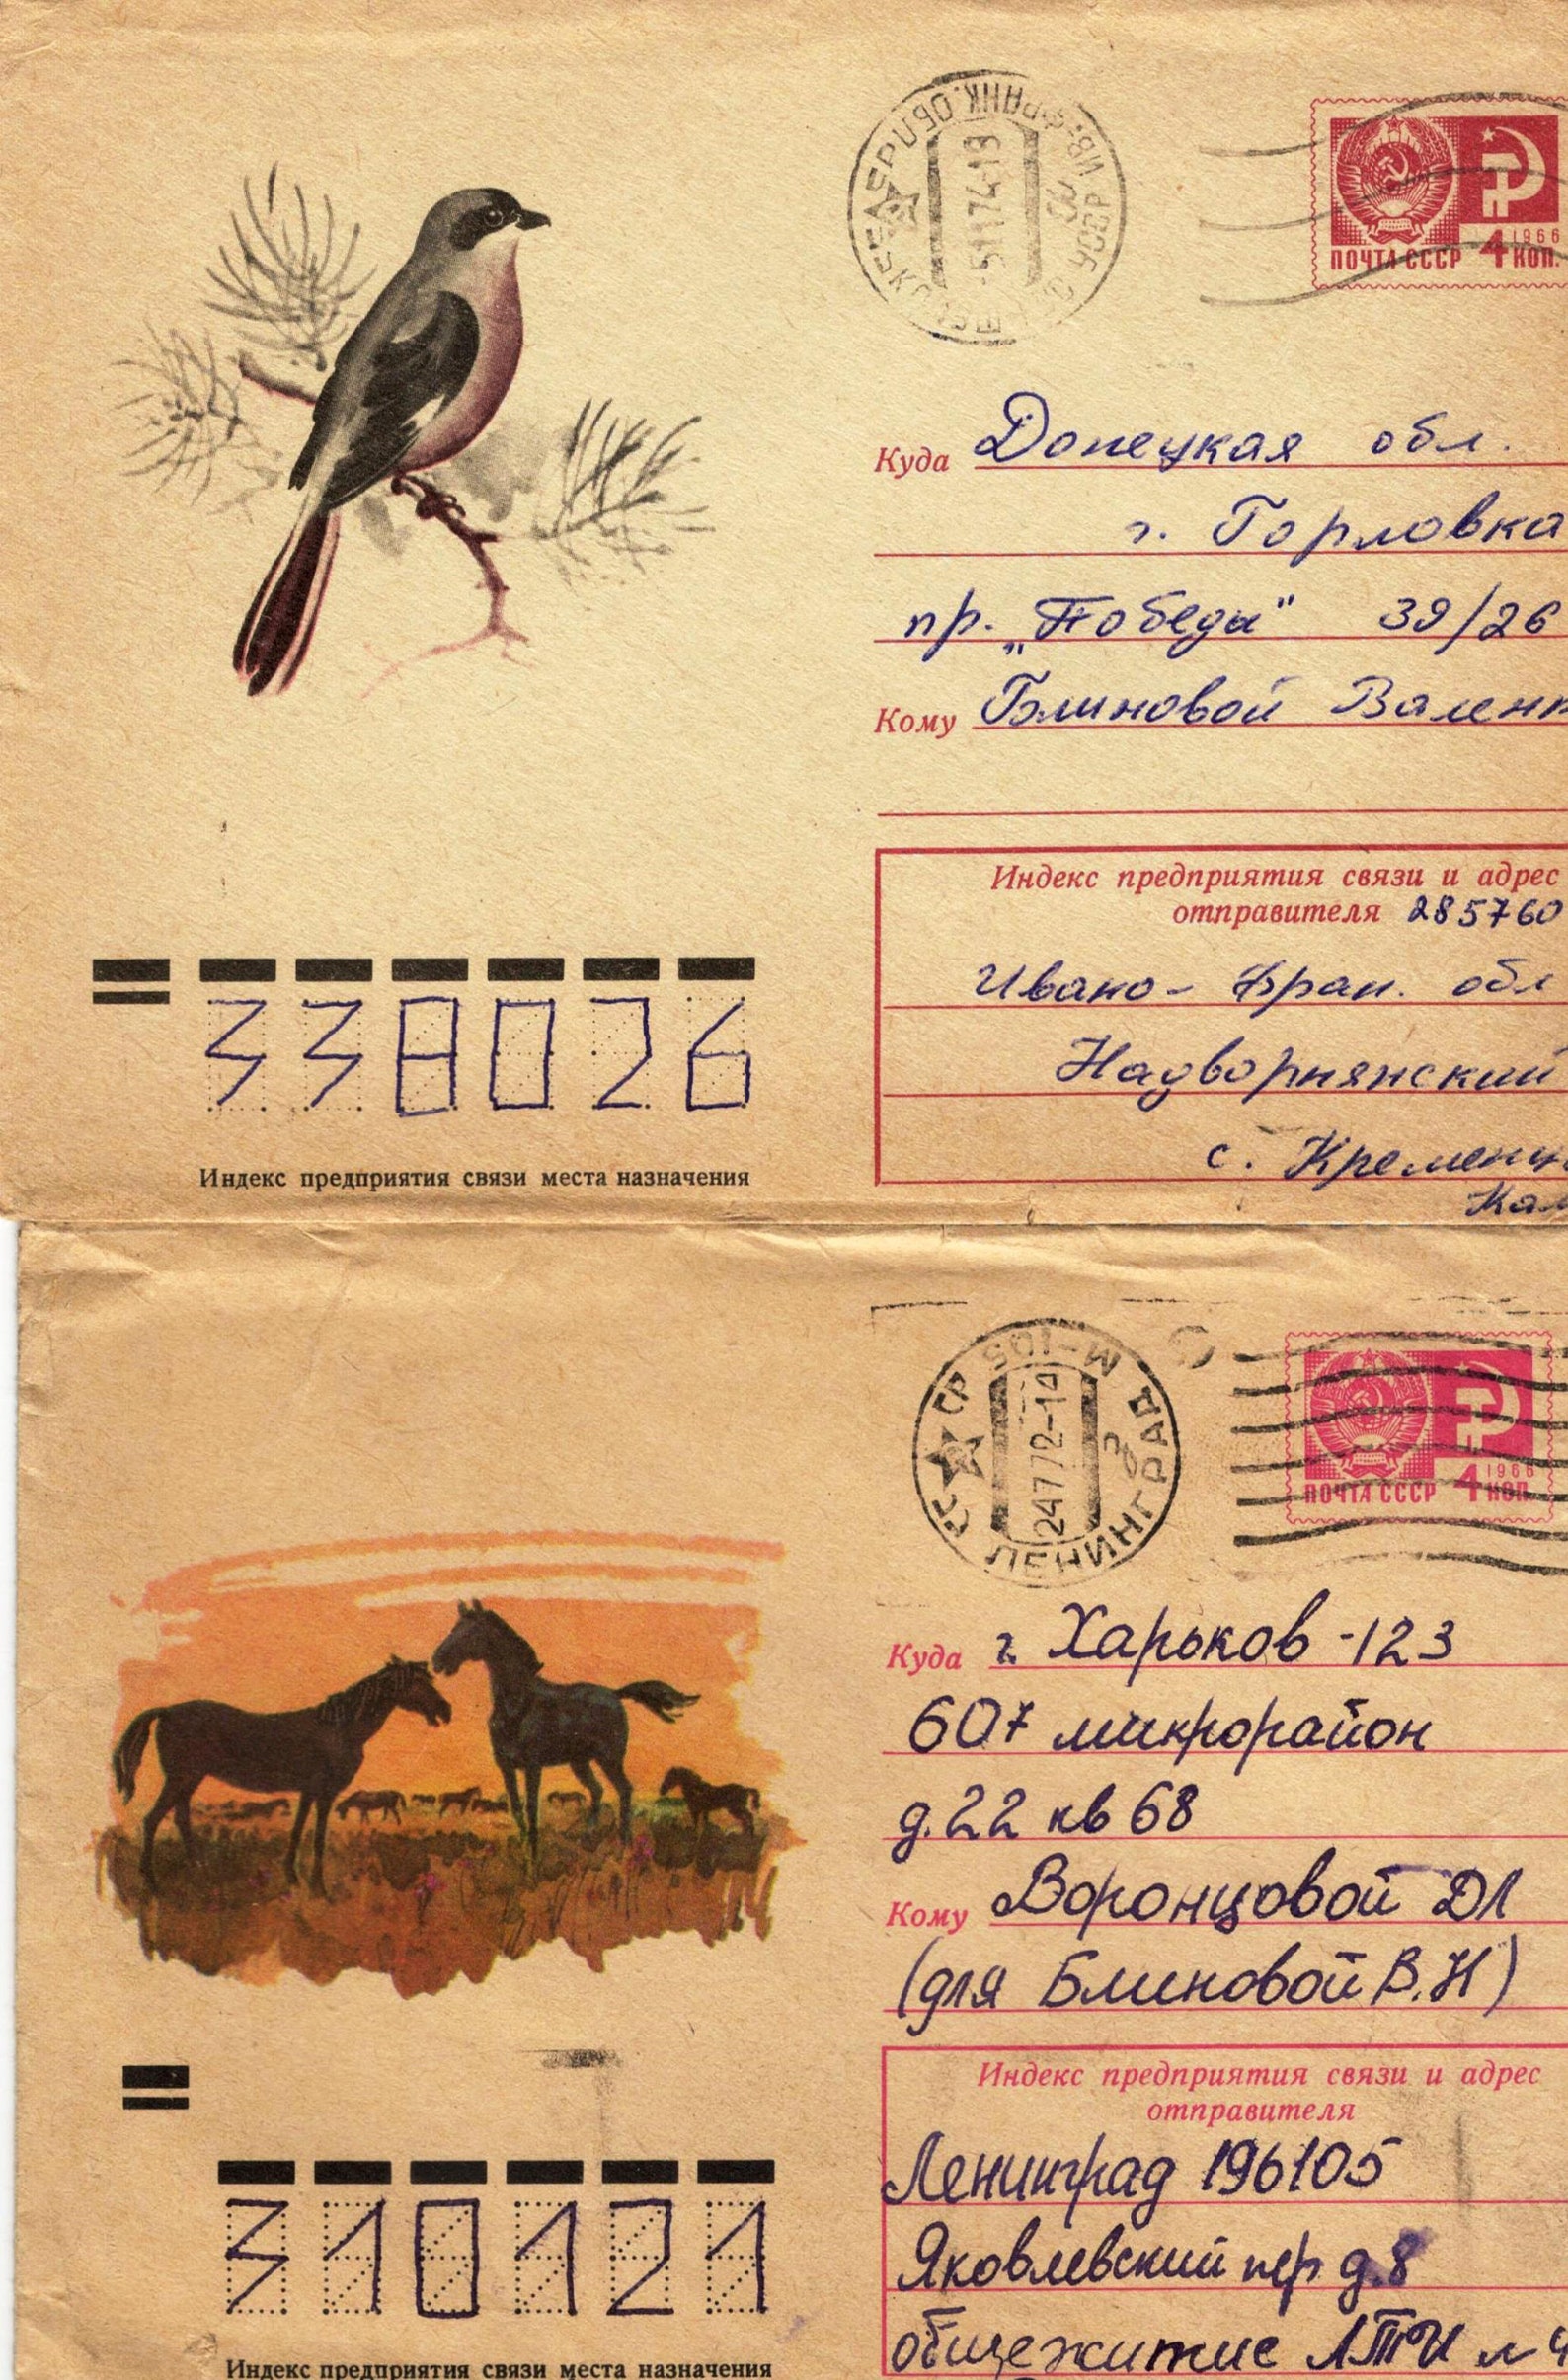 1966
ПОЧТА СССР 4 КОП.
5 11 74-19
Куда Донецкая обл.
г. Горловка
пр. „Победы" 39/26
Кому Блиновой
Индекс предприятия связи и адрес
отправителя 285760
Ивано-Фран. обл
Надворнянский
с.
338026
Индекс предприятия связи места назначения
М-105
ЛЕНИНГРАД
24 7 72-14
1966
ПОЧТА СССР 4 КОП.
Куда г. Харьков-123
607 микрорайон
д.22 кв 68
Кому Воронцовой ДЛ
(для Блиновой В.Н)
Индекс предприятия связи и адрес
отправителя
Ленинград 196105
Яковлевский пер д.8
общежитие ЛТИ
310121
Индекс предприятия связи места назначения